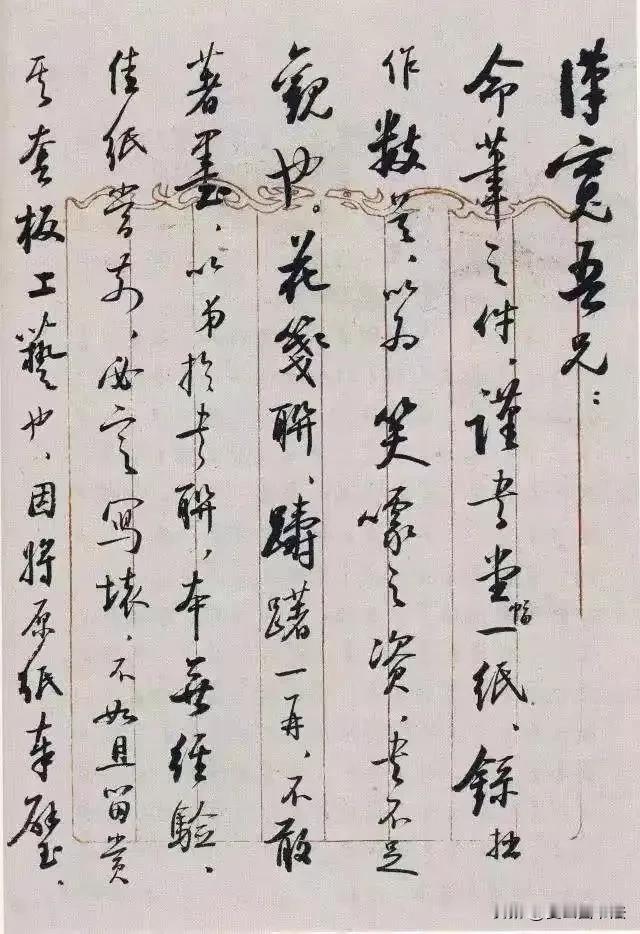 漢寬吾兄：
命筆之件，謹書堂幅一紙、錄拙
作數首，以為笑噱之資，書不足
觀也。花箋聯，躊躇一再，不敢
著墨，以弟於書聯，本無經驗，
佳紙當前，必定寫壞，不如且留賞
其套板工藝也，因將原紙奉璧，